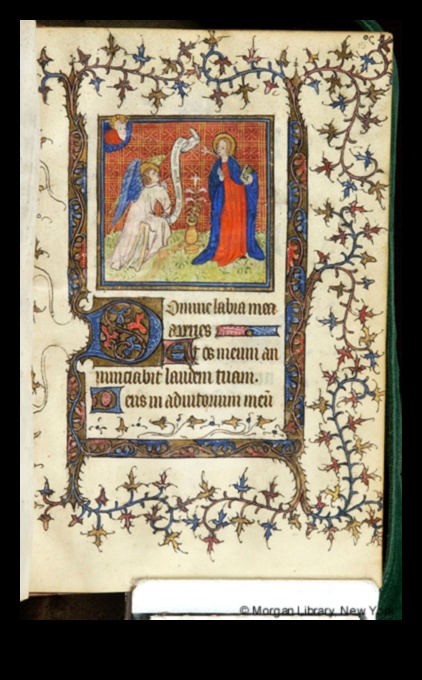 Domine labia mea
aperies
Et os meum an
nunciabit laudem tuam.
Deus in adiutorium meū
© Morgan Library, New York